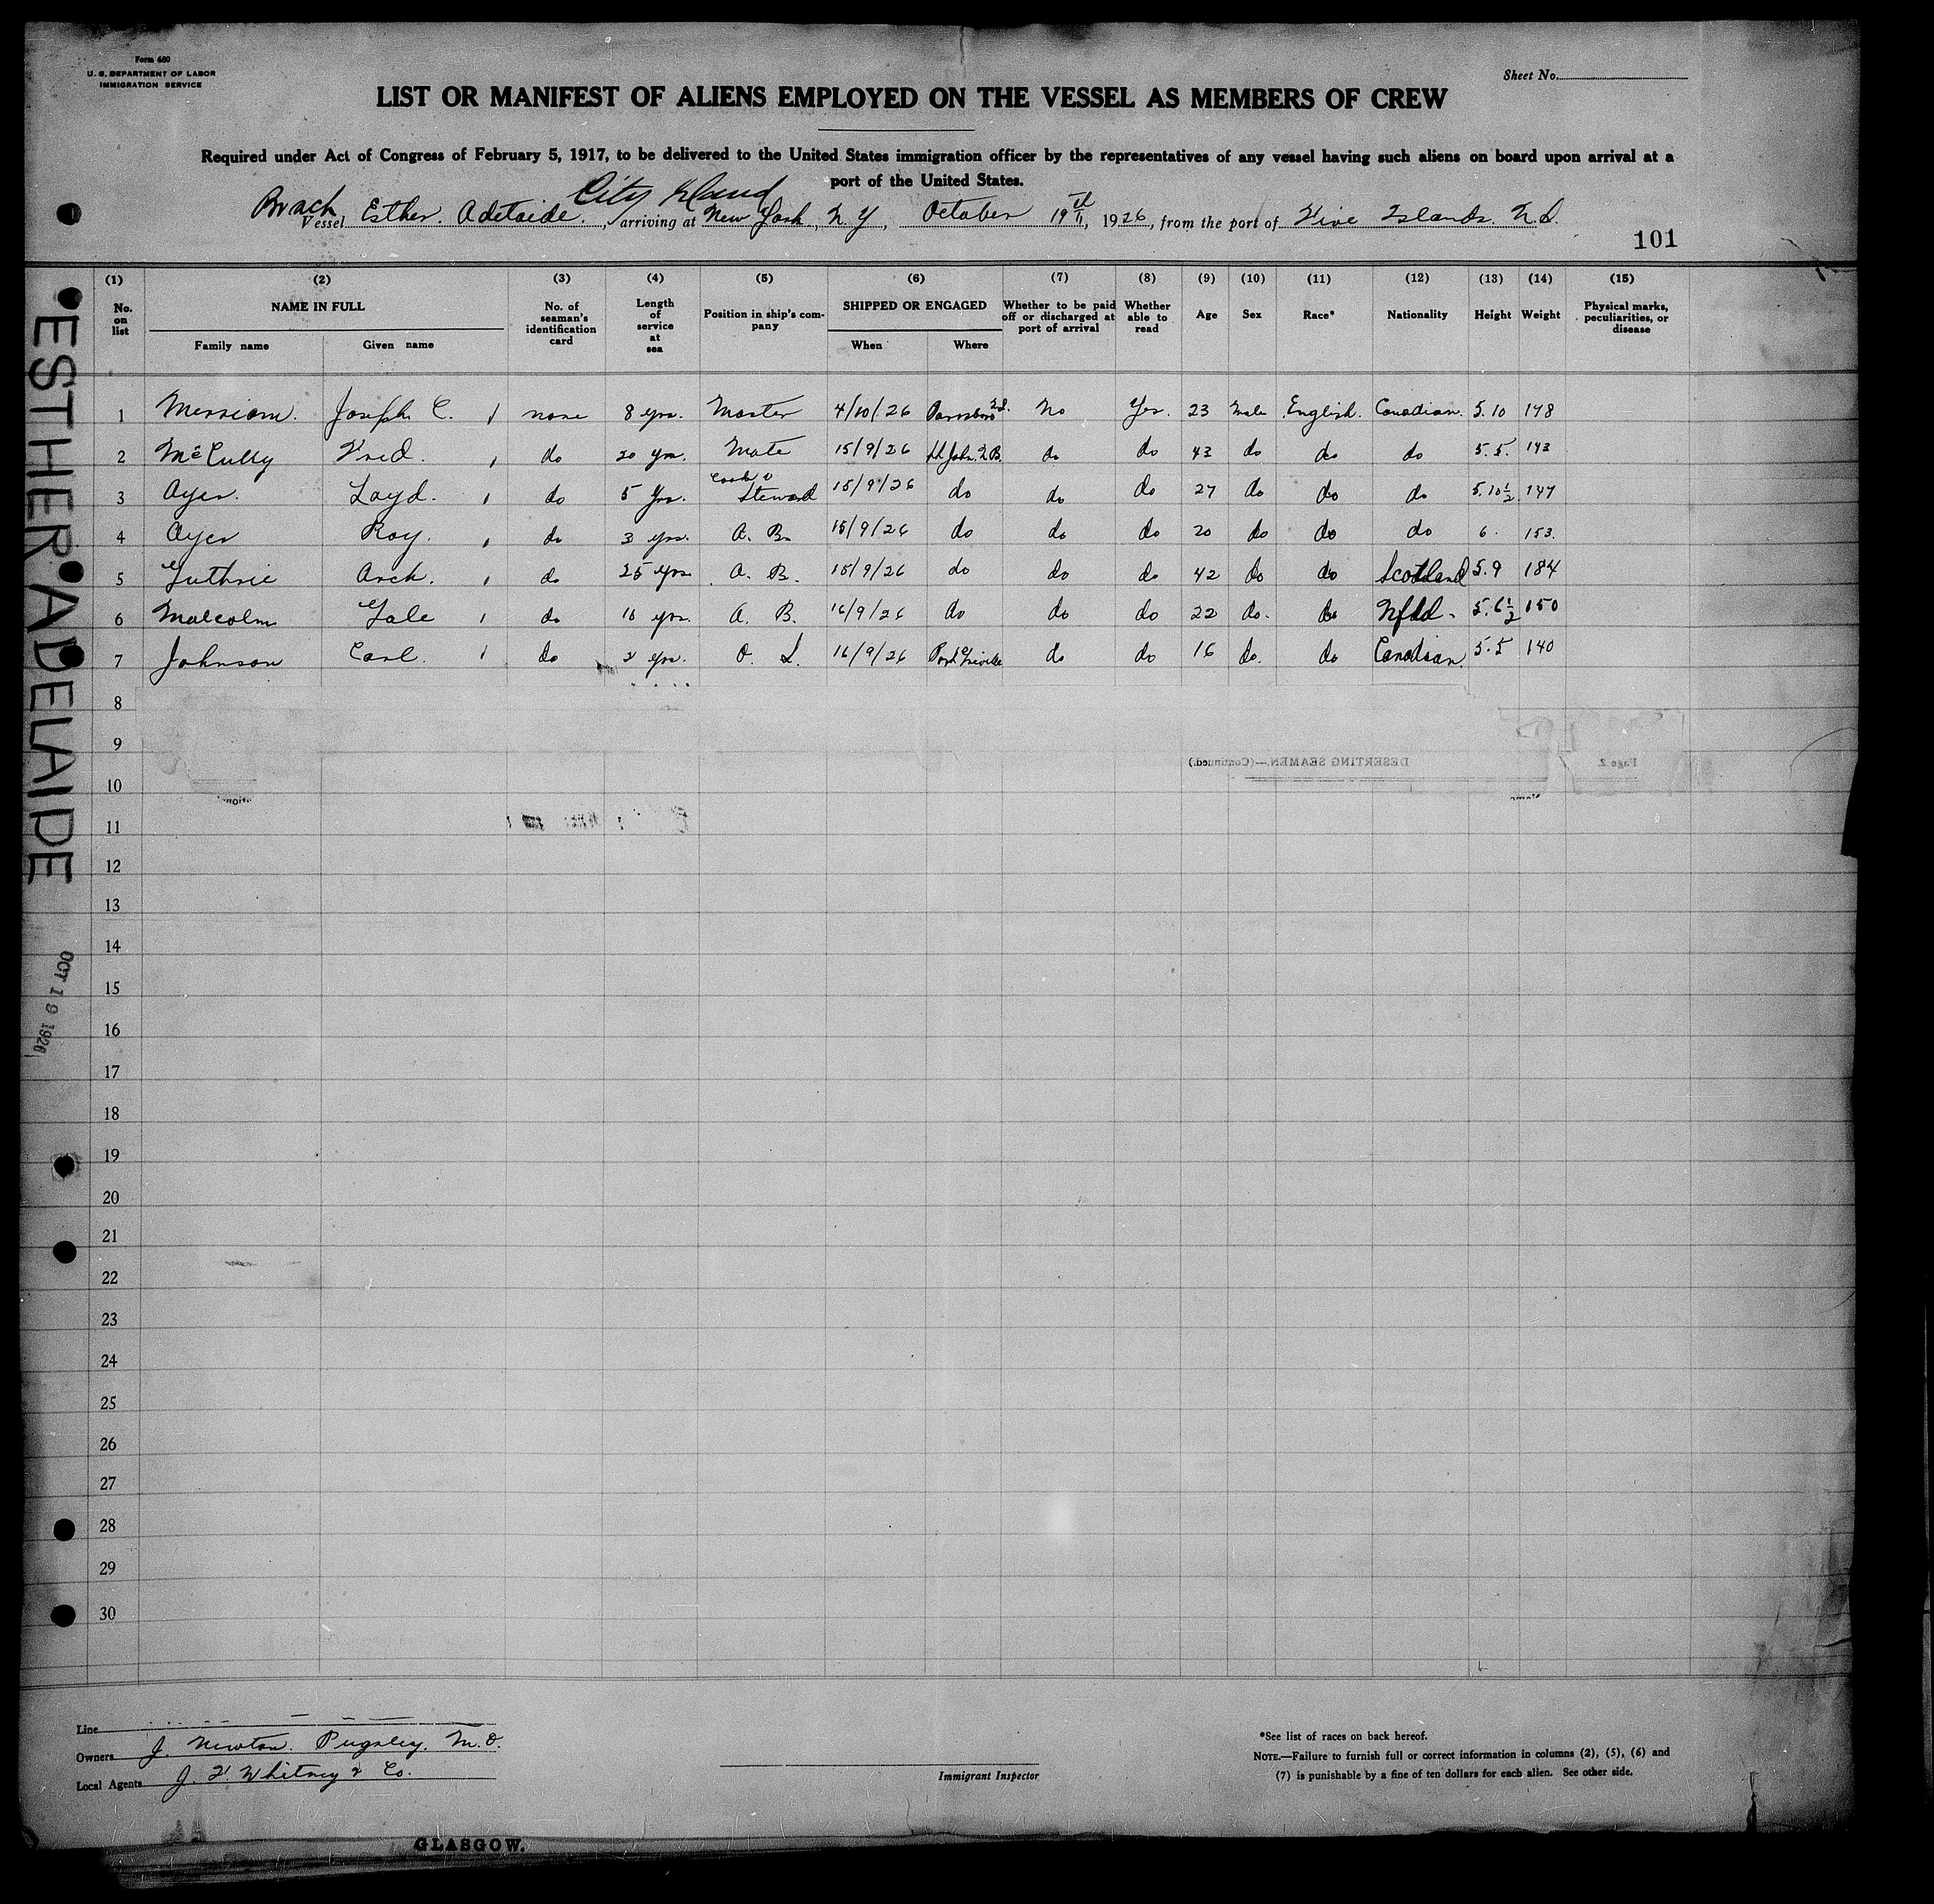 Form 680
U. S. DEPARTMENT OF LABOR
IMMIGRATION SERVICE
Sheet No.
LIST OR MANIFEST OF ALIENS EMPLOYED ON THE VESSEL AS MEMBERS OF CREW
Required under Act of Congress of February 5, 1917, to be delivered to the United States immigration officer by the representatives of any vessel having such aliens on board upon arrival at a
port of the United States.
City Island
Vessel Esther Adelaide, arriving at New York, N. Y., October 19th, 1926, from the port of Five Islands. N.S.
101
(1) (2) (3) (4) (5) (6) (7) (8) (9) (10) (11) (12) (13) (14) (15)
No. on list NAME IN FULL Family name Given name No. of seaman's identification card Length of service at sea Position in ship's company SHIPPED OR ENGAGED When Where Whether to be paid off or discharged at port of arrival Whether able to read Age Sex Race* Nationality Height Weight Physical marks, peculiarities, or disease
1 Merriam. Joseph C. none 8 yrs. Master 4/10/26 Parrsboro N.S. No Yes. 23 Male English. Canadian. 5.10 178
2 McCully Fred. do 20 yrs. Mate 15/9/26 St John. N.B. do do 43 do do do 5.5. 143
3 Ayer. Loyd. do 5 yrs. Cook & Steward 15/9/26 do do do 27 do do do 5.10½ 147
4 Ayer Roy. do 3 yrs. A. B. 15/9/26 do do do 20 do do do 6. 153.
5 Guthrie Arch. do 25 yrs. A. B. 15/9/26 do do do 42 do do Scotland 5.9 184
6 Malcolm Gale do 10 yrs. A. B. 16/9/26 do do do 22 do. do Nfld. 5.6½ 150
7 Johnson Carl. do 2 yrs. O. S. 16/9/26 Port Greville do do 16 do. do Canadian. 5.5 140
8
9
DESERTING SEAMEN.—(Continued.) Page 2.
10
11
12
13
14
15
16
17
18
19
20
21
22
23
24
25
26
27
28
29
30
ESTHER ADELAIDE
OCT 19 1926
Line
Owners J. Newton. Pugsley. M.D.
Local Agents J. F. Whitney & Co.
Immigrant Inspector
*See list of races on back hereof.
NOTE.—Failure to furnish full or correct information in columns (2), (5), (6) and
(7) is punishable by a fine of ten dollars for each alien. See other side.
GLASGOW.